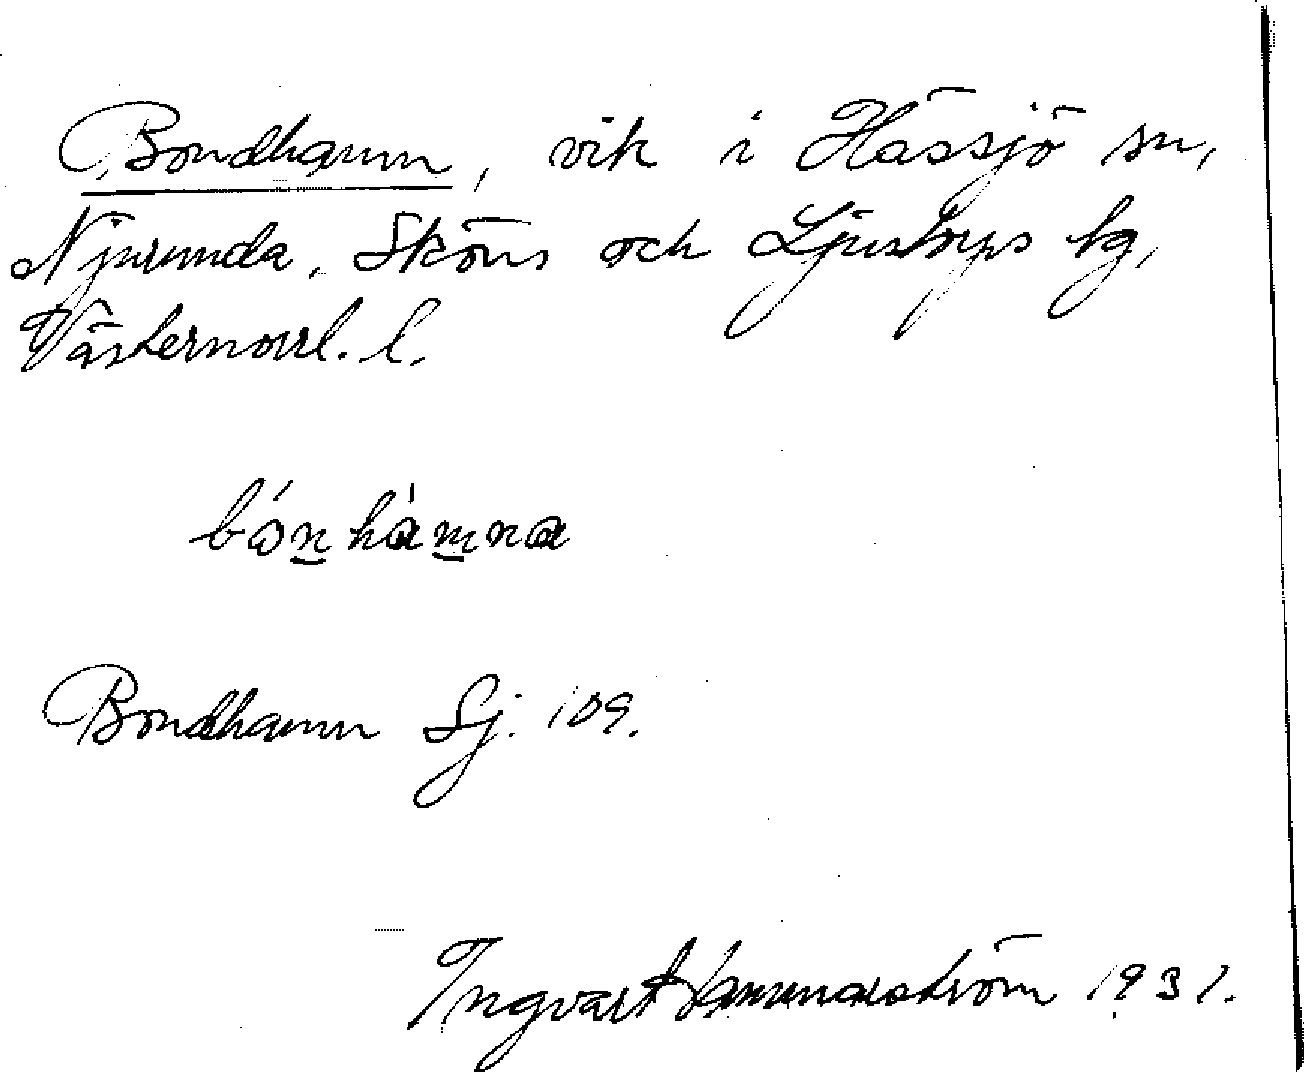 Bondhamn, vik i Hässjö sn,
Njurunda, Sköns och Ljustorps tg,
Västernorrl. l.
bónhàmna
Bondhamn Sj. 109.
Ingvart Hammarström 1931.